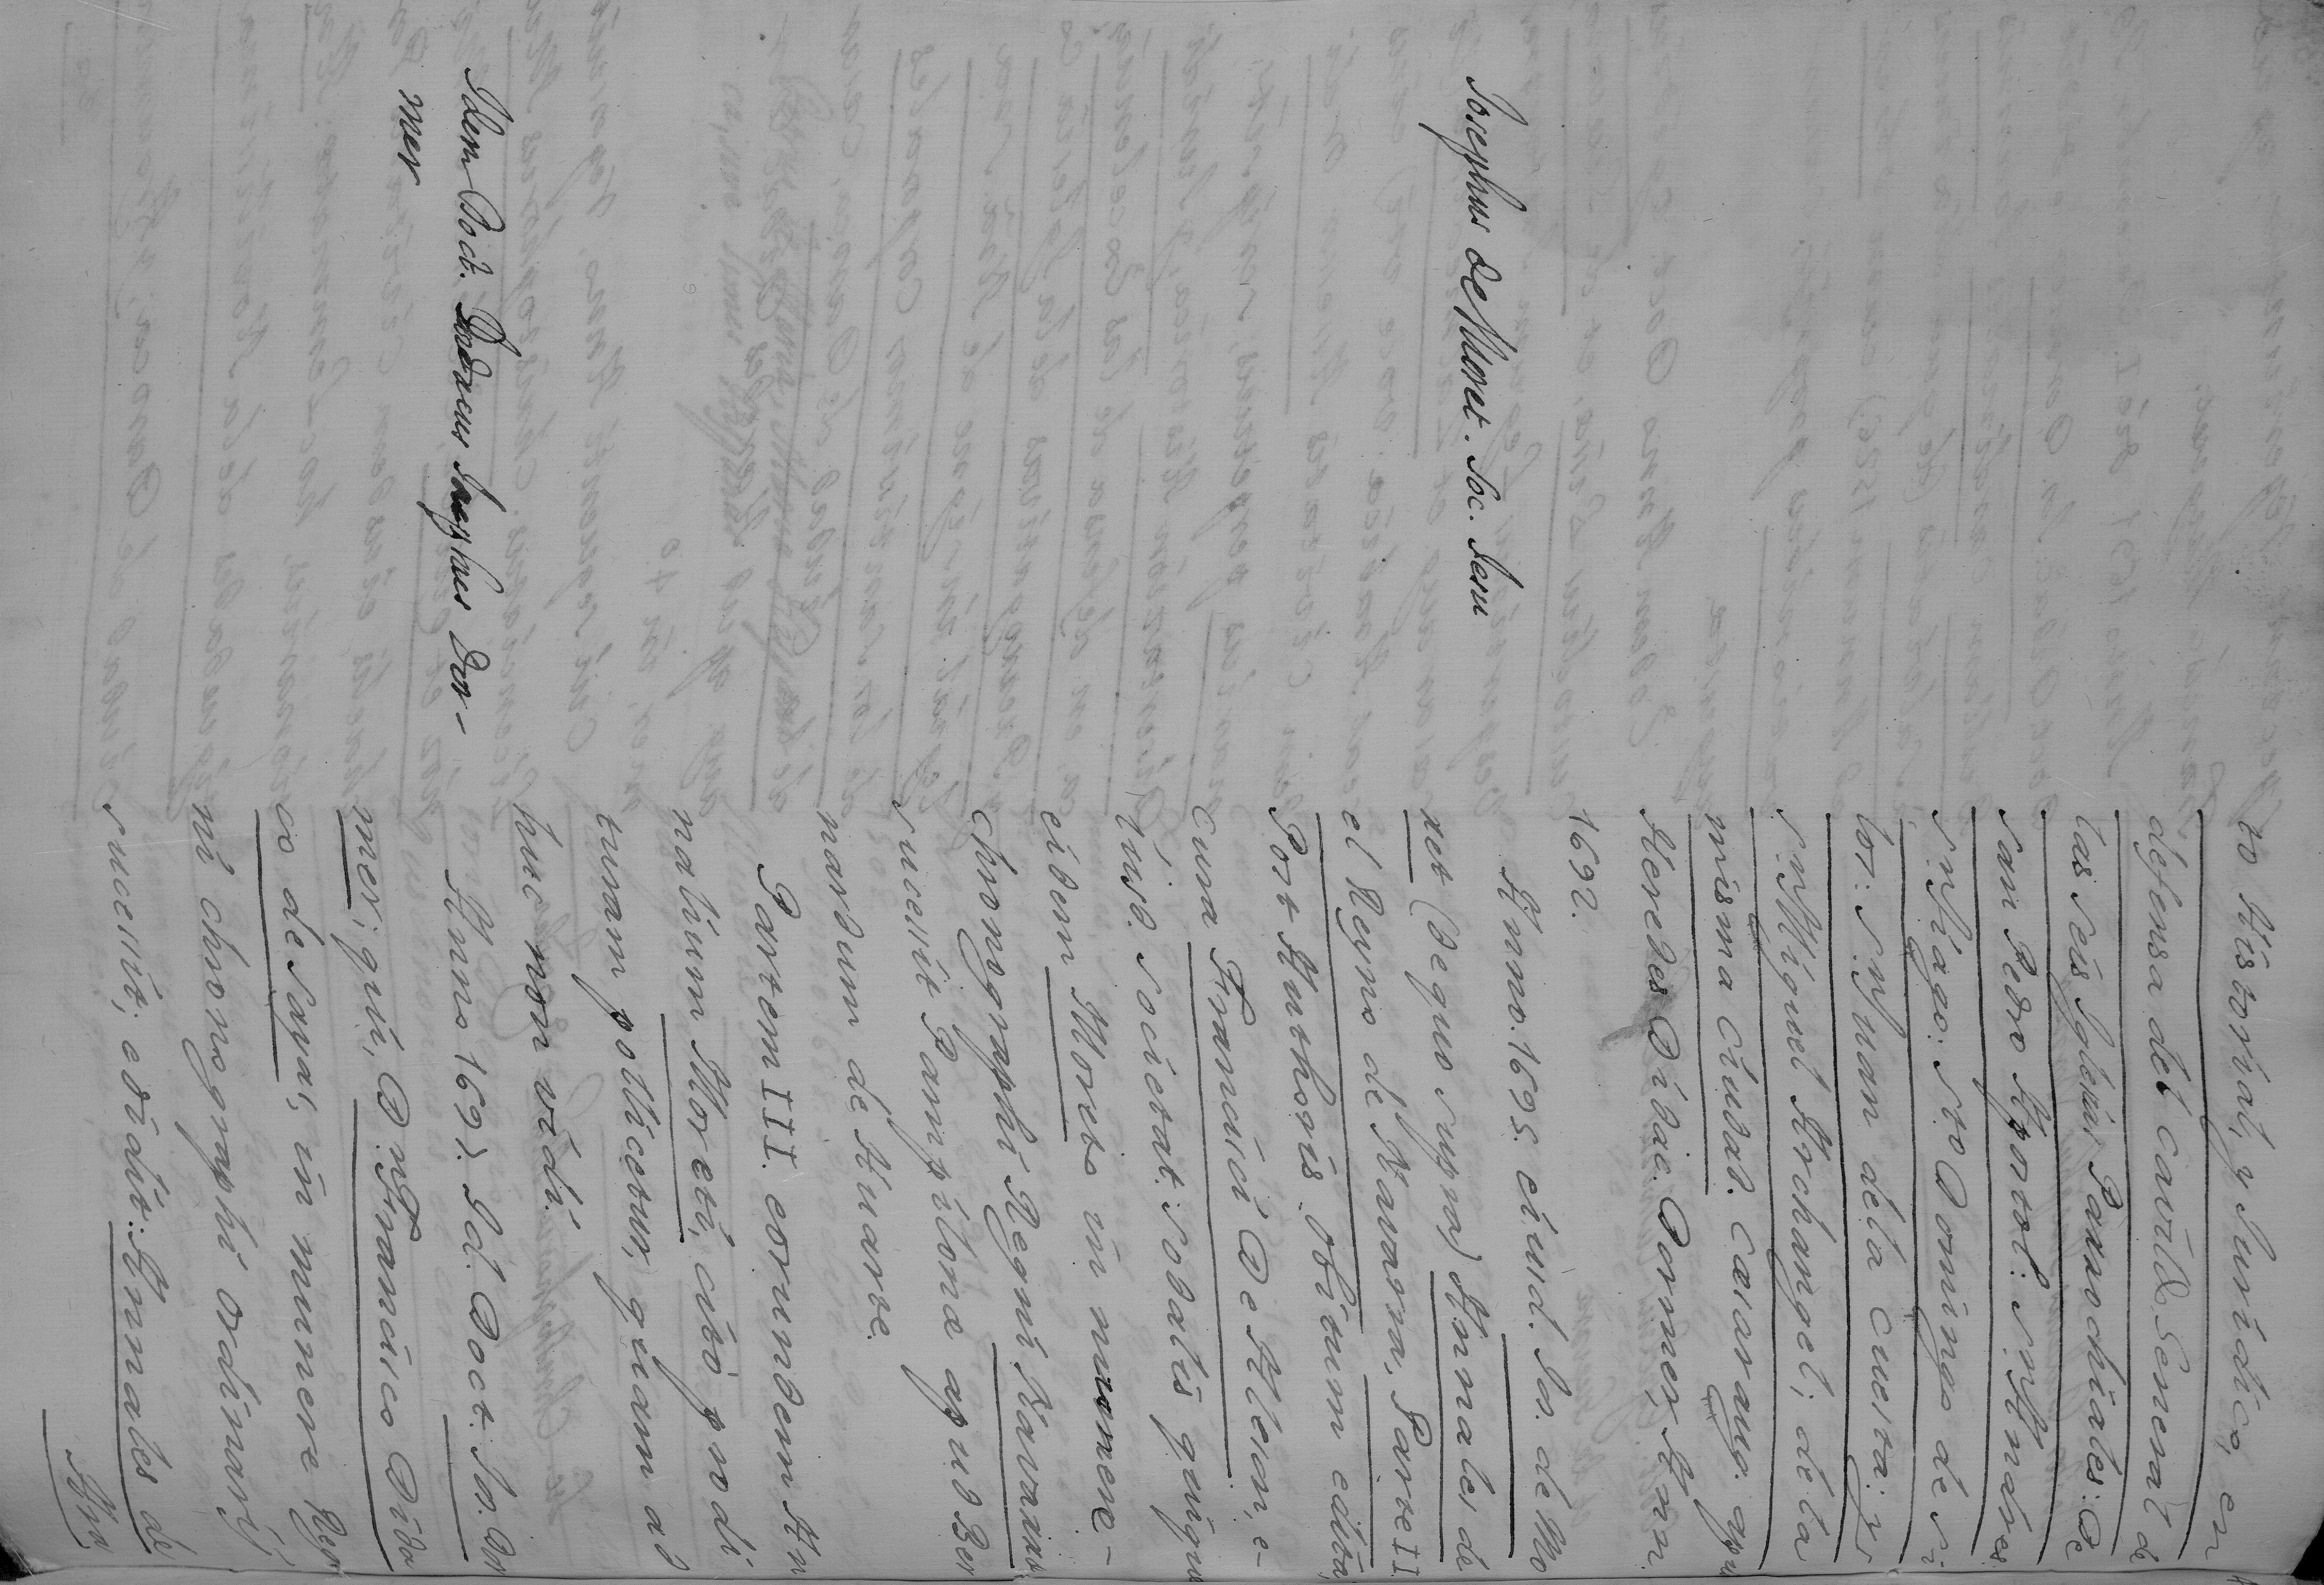 do Historial, y Juridico, en
defensa del Cavild. General de
las seis Iglesias Parrochiales: De
San Pedro Apostol: S. Andres
Santiago: Sto Domingo de Si-
los: S. Juan de la Cuesta: y
S. Miguel Archangel; de la
misma ciudad. Caesaraug. apud
Heredes Didaci Dormer, Ann.
1692.
Josephus de Moret. Soc. Jesu
Anno 1695. eiusd. Jos. de Mo
ret (de quo supra) Annales de
el Reyno de Navarra. Parte II
Post Authoris Obitum edita,
cura Francisci De Aleson, e-
iusd. Societat. sodalis quique
eidem Moreto in munere
chronographi Regni Navarrae
successit Pampilonae apud Ber
nardum de Huarte.
Partem III. eorundem An
nalium Moreti, cito prodi
turam pollicetur, quam ad
huc non vidi.
Idem Doct. Didacus Josephus Dor-
mer
Anno 1697. Id. Doct. Jos. Dor
mer; qui, D. Francisco Dido
co de Sayas, in munere Reg
ni chronographi ordinarij
successit; edidit: Annales de
Ara